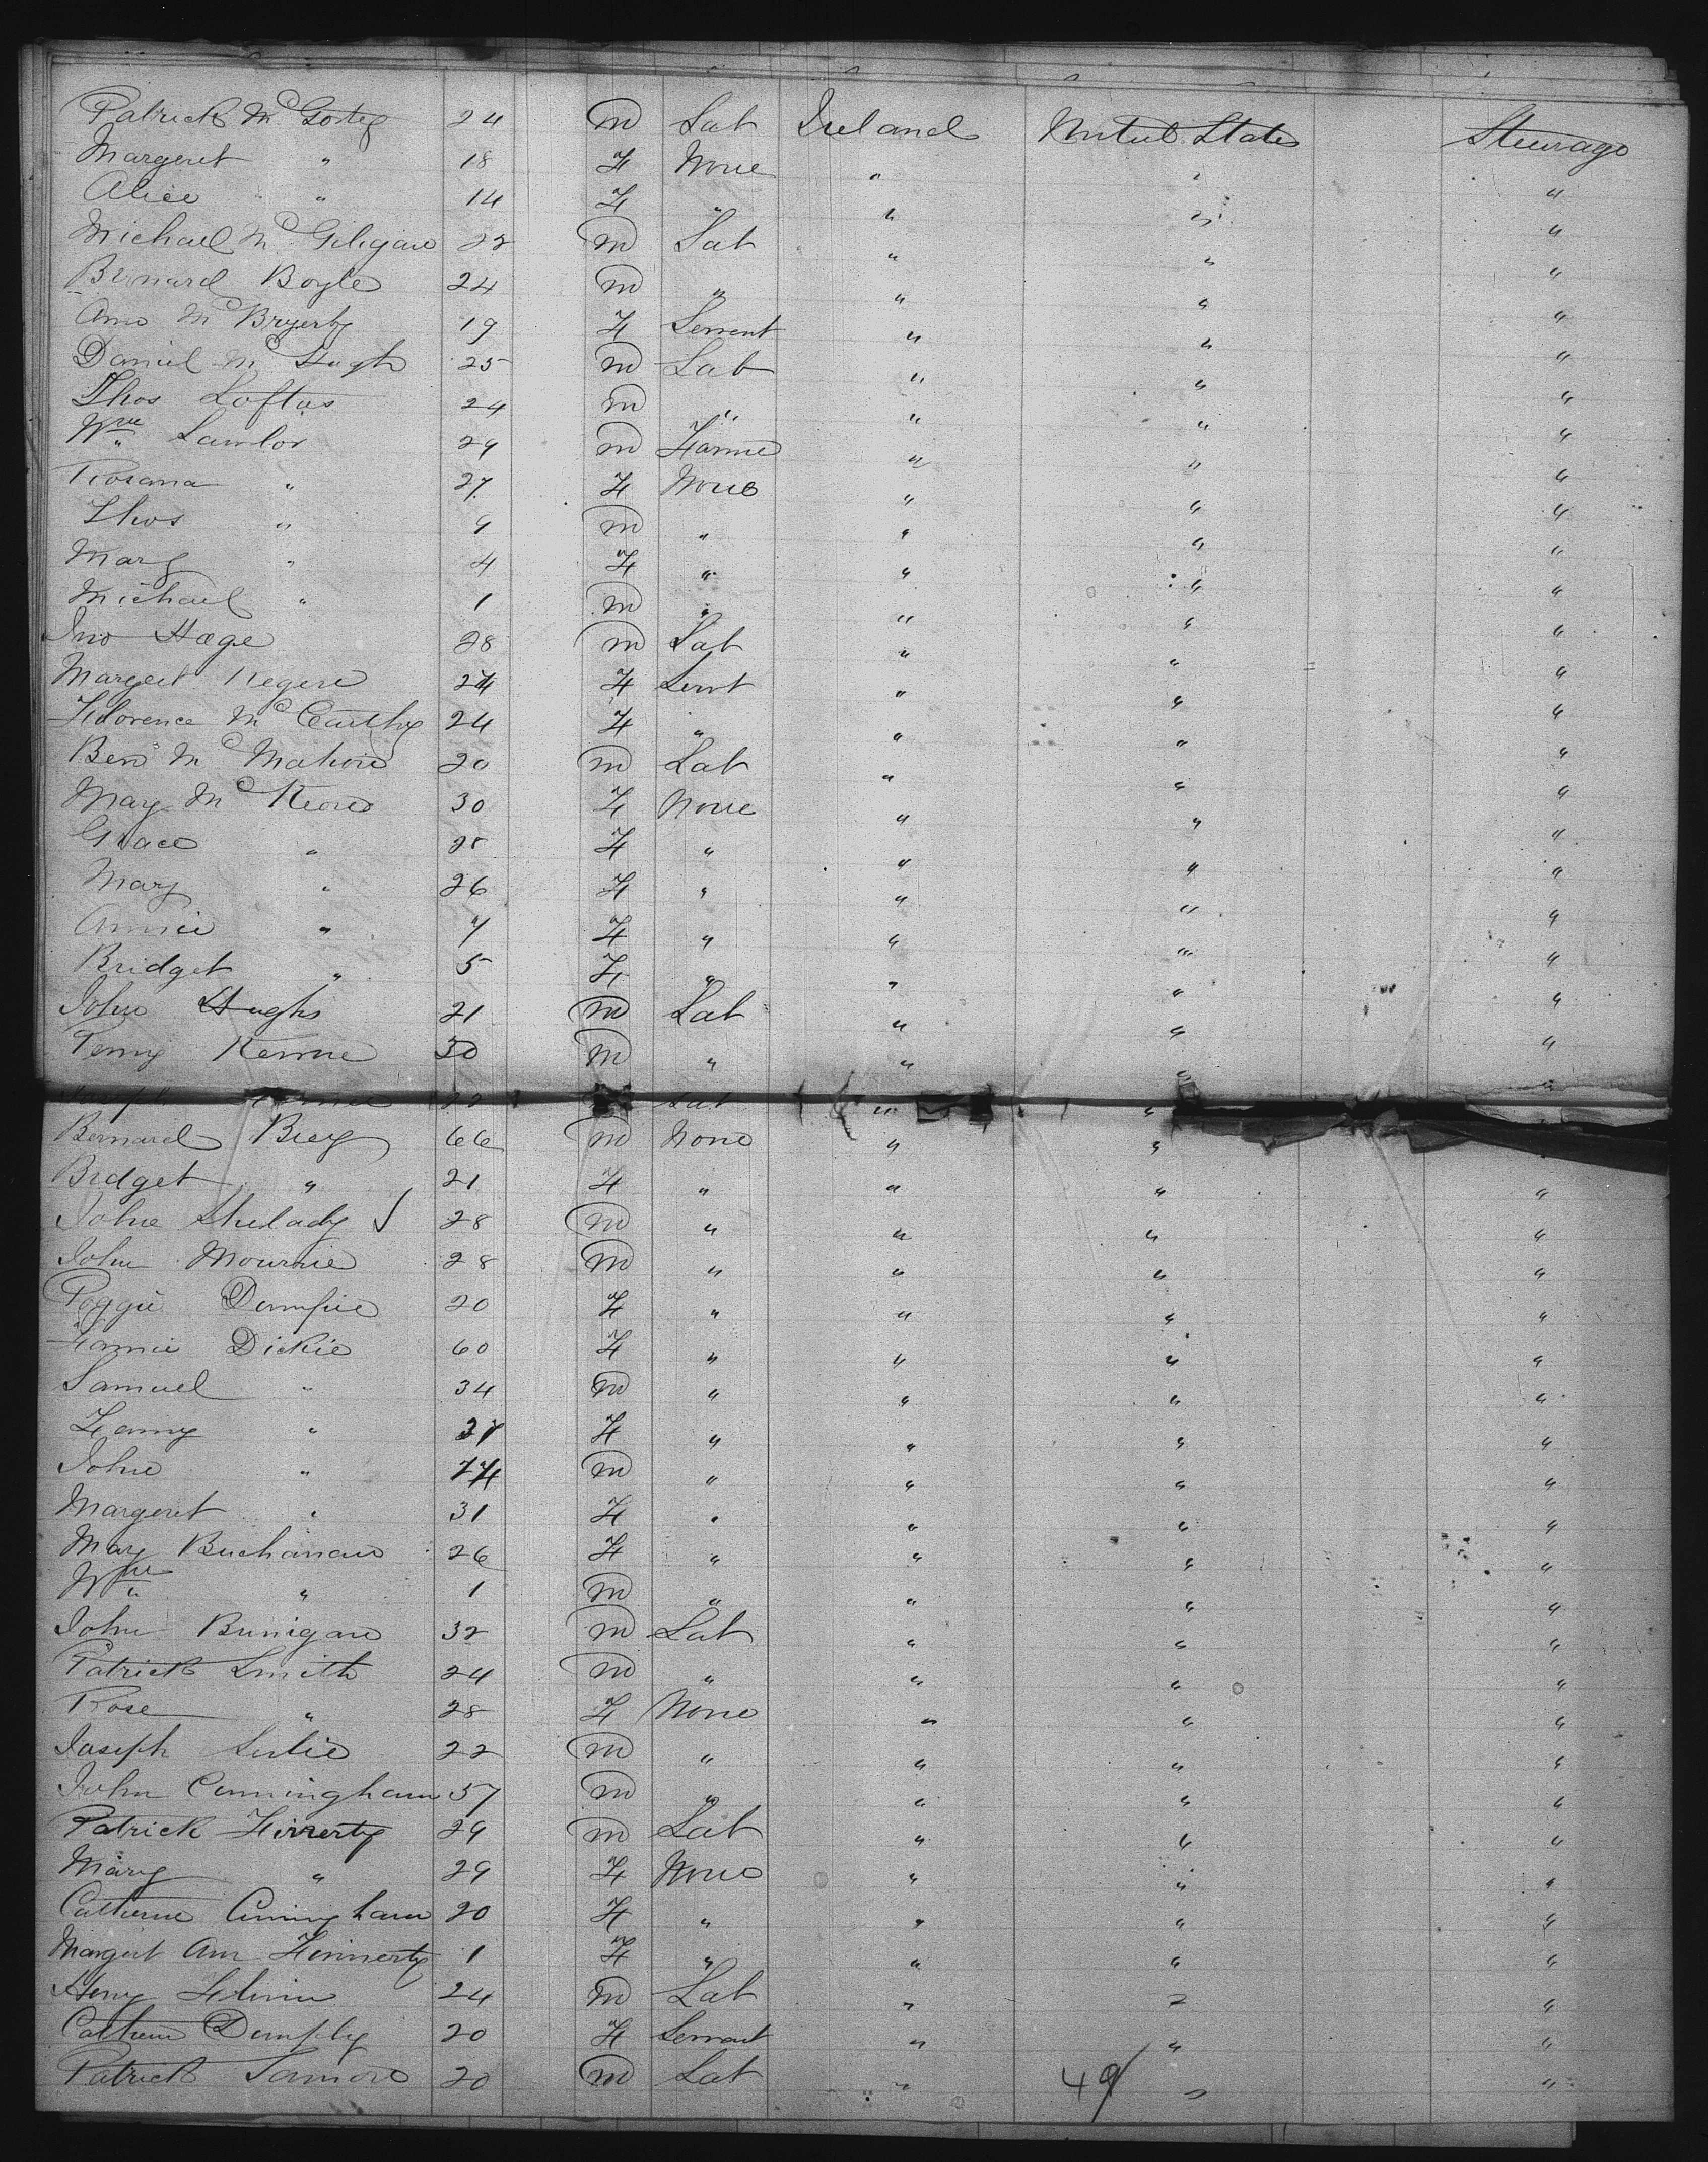 Patrick McGorty 24 M Lab Ireland United States Steerage
Margeret " 18 F None " " "
Alice " 14 F " " " "
Michael McGiligan 22 M Lab " " "
Bernard Boyle 24 M " " " "
Ann McBryerty 19 F Servent " " "
Daniel McHugh 25 M Lab " " "
Thos Loftus 24 M " " " "
Wm Lawlor 29 M Farme " " "
Rosana " 27 F None " " "
Thos " 9 M " " " "
Mary " 4 F " " " "
Michael " 1 M " " " "
Jno Hage 28 M Lab " " "
Margeet Kegere 24 F Servt " " "
Fldorence McCarthy 24 F " " " "
Ben McMahon 20 M Lab " " "
May McKeon 30 F None " " "
Grace " 28 F " " " "
Mary " 26 F " " " "
Annie " 7 F " " " "
Bridget " 5 F " " " "
John Hughs 21 M Lab " " "
Terry Kerrne 30 M " " " "
22 Lab " " "
Bernard Brey 66 M None " "
Bridget " 21 F " " " "
John Shelady ✓ 28 M " " " "
John Mournie 28 M " " " "
Poggie Dumfie 20 F " " " "
Fannie Dickie 60 F " " " "
Samuel " 34 M " " " "
Fanny " F " " " "
John " M " " " "
Margeret " 31 F " " " "
May Buchanan 26 F " " " "
Wm " 1 M " " " "
John Brunigan 32 M Lab " " "
Patrick Smith 24 M " " " "
Rose " 28 F None " " "
Joseph Leslie 22 M " " " "
John Cunningham 57 M " " " "
Patrick Finnerty 29 M Lab " " "
Mary " 29 F None " " "
Catherine Cuningham 20 F " " " "
Margert Ann Finnerty 1 F " " " "
Henry 24 M Lab " " "
Cathern Dumphy 20 F Servant " " "
Patrick 20 M Lab " " "
49